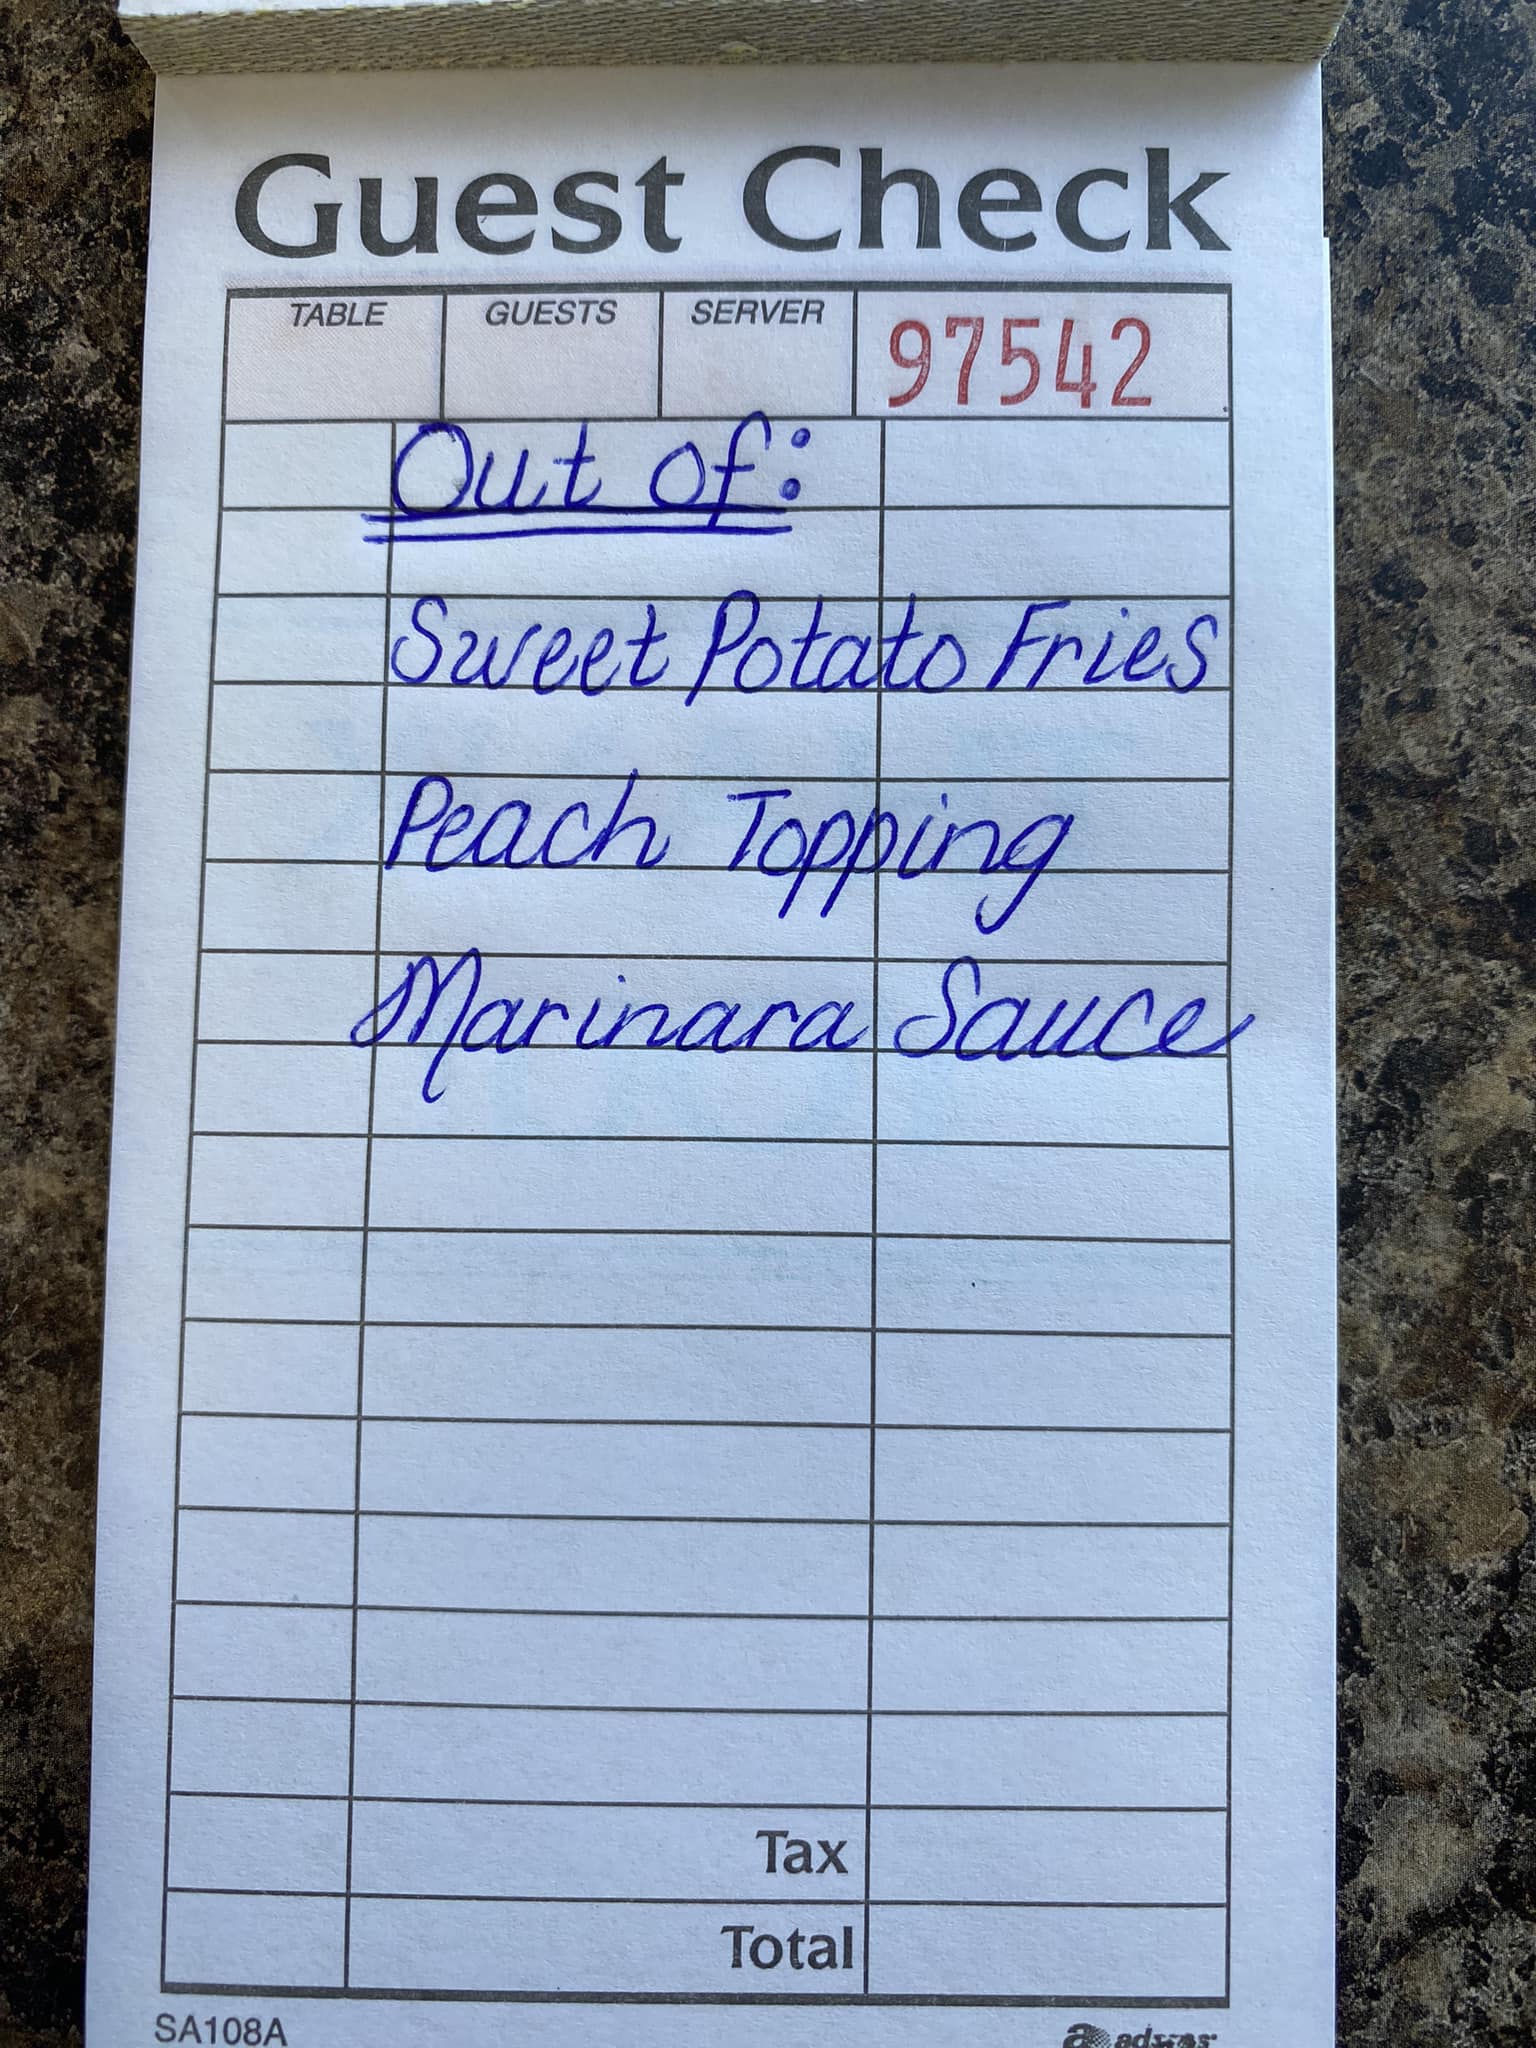 Guest Check
TABLE GUESTS SERVER 97542
Out of:
Sweet Potato Fries
Peach Topping
Marinara Sauce
Tax
Total
SA108A